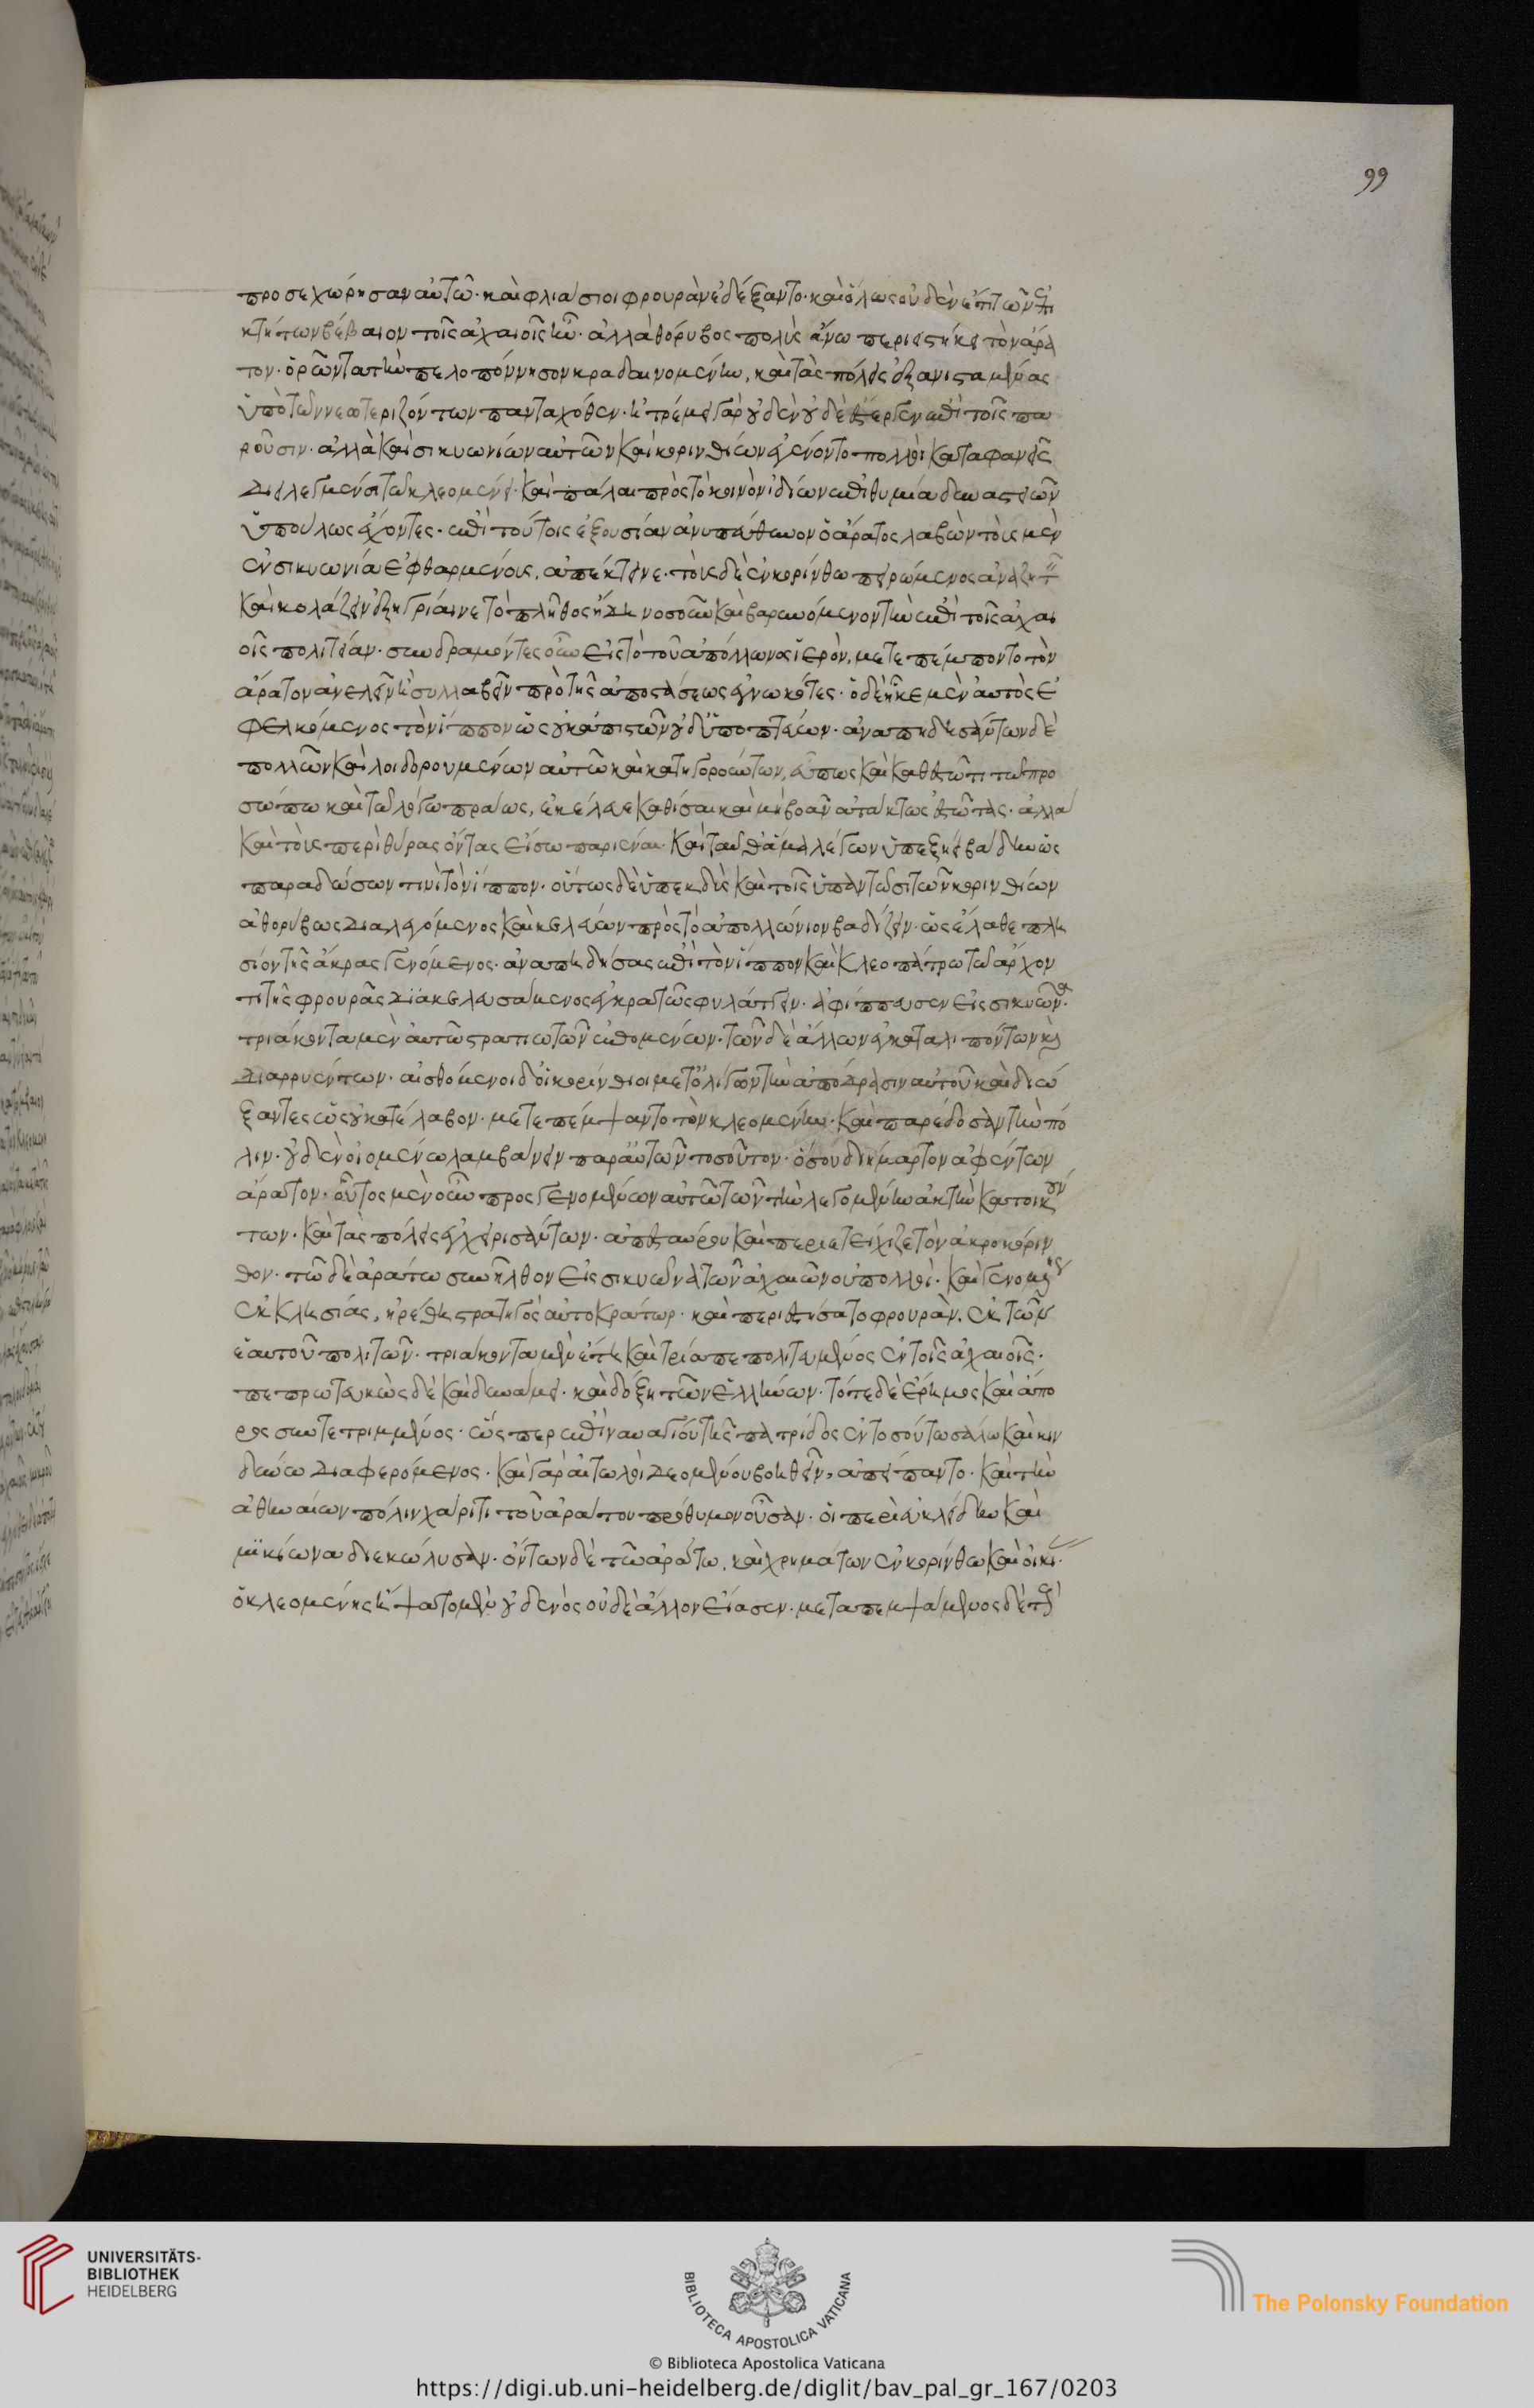 99
προσεχώρησαν αὐτῶ· καὶ φλιάσιοι φρουρὰν ἐδέξαντο· καὶ ὅλως οὐδὲν ἔτι τῶν ἐπι
κτήτων βέβαιον τοῖς ἀχαιοῖς ἦν· ἀλλὰ θόρυβος πολὺς ἄνω περιεστήκει τὸν ἄρα
τον· ὁρῶντα τὴν πελοπόννησον κραδαινομένην, καὶ τὰς πόλεις ἐξανισταμένας
ὑπὸ τῶν νεωτεριζόντων πανταχόθεν· ἠτρέμει γὰρ οὐδὲν οὐδὲ ἔστεργεν ἐπὶ τοῖς πα
ροῦσιν· ἀλλὰ καὶ σικυωνίων αὐτῶν καὶ κορινθίων ἐγένοντο πολλοὶ καταφανεῖς
διειλεγμένοι τῶ κλεομένει· καὶ πάλαι πρὸς τὸ κοινὸν ἰδίων ἐπιθυμία δυναστειῶν
ὑπούλως ἔχοντες· ἐπὶ τούτοις ἐξουσίαν ἀνυπεύθυνον ὁ ἄρατος λαβὼν τοὺς μὲν
ἐν σικυωνία ἐφθαρμένους, ἀπέκτεινε· τοὺς δὲ ἐν κορίνθω πειρώμενος ἀναζητεῖν
καὶ κολάζειν ἐξηγρίαινε τὸ πλῆθος ἤδη νοσοῦν καὶ βαρυνόμενον τὴν ἐπὶ τοῖς ἀχαι
οῖς πολιτείαν· συνδραμόντες οὖν εἰς τὸ τοῦ ἀπόλλωνος ἱερὸν, μετεπέμποντο τὸν
ἄρατον ἀνελεῖν ἢ συλλαβεῖν πρὸ τῆς ἀποστάσεως ἐγνωκότες· ὁ δὲ ἧκε μὲν αὐτὸς ἐ
φελκόμενος τὸν ἵππον ὡς οὐκ ἀπιστῶν οὐδ' ὑποπτεύων· ἀναπηδησάντων δὲ
πολλῶν καὶ λοιδορουμένων αὐτῶ καὶ κατηγορούντων, εὖ πως καὶ καθεστῶτι τῶ προ
σώπω καὶ τῶ λόγω πράως, ἐκέλευε καθίσαι καὶ μὴ βοᾶν ἀτάκτως ἑστῶτας· ἀλλὰ
καὶ τοὺς περὶ θύρας ὄντας εἴσω παριέναι· καὶ ταῦθ' ἅμα λέγων ὑπεξήει βάδην ὡς
παραδώσων τινὶ τὸν ἵππον· οὕτως δὲ ὑπεκδὺς καὶ τοῖς ὑπαντῶσι τῶν κορινθίων
ἀθορύβως διαλεγόμενος καὶ κελεύων πρὸς τὸ ἀπολλώνιον βαδίζειν· ὡς ἔλαθε πλη
σίον τῆς ἄκρας γενόμενος· ἀναπηδήσας ἐπὶ τὸν ἵππον καὶ κλεοπάτρω τῶ ἄρχον
τι τῆς φρουρᾶς διακελευσάμενος ἐγκρατῶς φυλάττειν· ἀφίππευσεν εἰς σικυῶνα·
τριάκοντα μὲν αὐτῶ στρατιωτῶν ἑπομένων· τῶν δὲ ἄλλων ἐγκαταλιπόντων καὶ
διαρρυέντων· αἰσθόμενοι δ' οἱ κορίνθιοι μετ' ὀλίγον τὴν ἀπόδρασιν αὐτοῦ καὶ διώ
ξαντες ὡς οὐ κατέλαβον· μετεπέμψαντο τὸν κλεομένην· καὶ παρέδοσαν τὴν πό
λιν· οὐδὲν οἰομένω λαμβάνειν παρ' αὐτῶν τοσοῦτον· ὅσου διήμαρτον ἀφέντων
ἄρατον· οὗτος μὲν οὖν προσγενομένων αὐτῶ τῶν τὴν λεγομένην ἀκτὴν κατοικούν
των· καὶ τὰς πόλεις ἐγχειρισάντων· ἀπεσταύρου καὶ περιετείχιζε τὸν ἀκροκόριν
θον· τῶ δὲ ἀράτω συνῆλθον εἰς σικυῶνα τῶν ἀχαιῶν οὐ πολλοὶ· καὶ γενομένης
ἐκκλησίας, ἡρέθη στρατηγὸς αὐτοκράτωρ· καὶ περιεστήσατο φρουρὰν· ἐκ τῶν
ἑαυτοῦ πολιτῶν· τριάκοντα μὲν ἔτη καὶ τρία πεπολιτευμένος ἐν τοῖς ἀχαιοῖς·
πεπρωτευκὼς δὲ καὶ δυνάμει· καὶ δόξη τῶν ἑλλήνων· τότε δὲ ἔρημος καὶ ἄπο
ρος συντετριμμένος· ὥσπερ ἐπὶ ναυαγίου τῆς πατρίδος ἐν τοσούτω σάλω καὶ κιν
δύνω διαφερόμενος· καὶ γὰρ αἰτωλοὶ δεομένου βοηθεῖν, ἀπείπαντο· καὶ τὴν
ἀθηναίων πόλιν χάριτι τοῦ ἀράτου προθυμουοῦσαν· οἱ περὶ εὐκλείδην καὶ
μικίωνα διεκώλυσαν· ὄντων δὲ τῶ ἀράτω, καὶ χρημάτων ἐν κορίνθω καὶ οἰκί·
ὁ κλεομένης ἥψατο μὲν οὐδενὸς οὐδὲ ἄλλον εἴασεν· μεταπεμψάμενος δὲ τοὺς

UNIVERSITÄTS-
BIBLIOTHEK
HEIDELBERG
BIBLIOTECA APOSTOLICA VATICANA
The Polonsky Foundation
© Biblioteca Apostolica Vaticana
https://digi.ub.uni-heidelberg.de/diglit/bav_pal_gr_167/0203